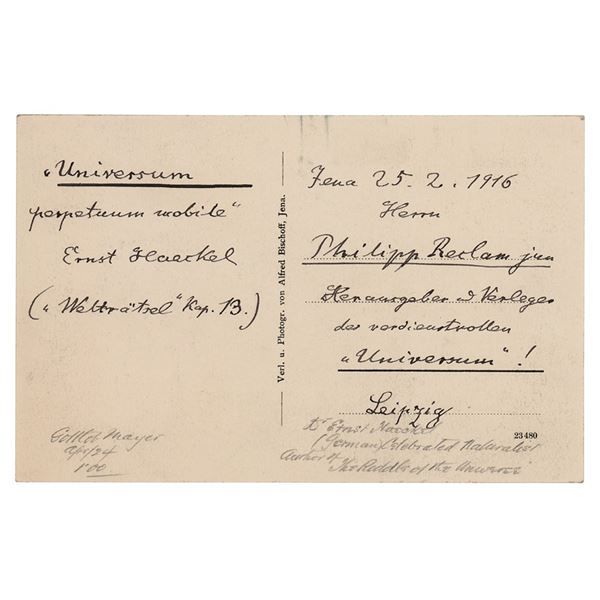 „Universum
perpetuum mobile“
Ernst Haeckel
(„Welträtsel“ Kap. 13.)
Verl. u. Photogr. von Alfred Bischoff, Jena.
Jena 25. 2. 1916
Herrn
Philipp Reclam jun
Herausgeber u Verleger
des verdienstvollen
„Universum“!
Leipzig
23480
Gottlob Mayer
1.00
Dr Ernst Haeckel
(German) Celebrated Naturalist
Author of
The Riddle of the Universe